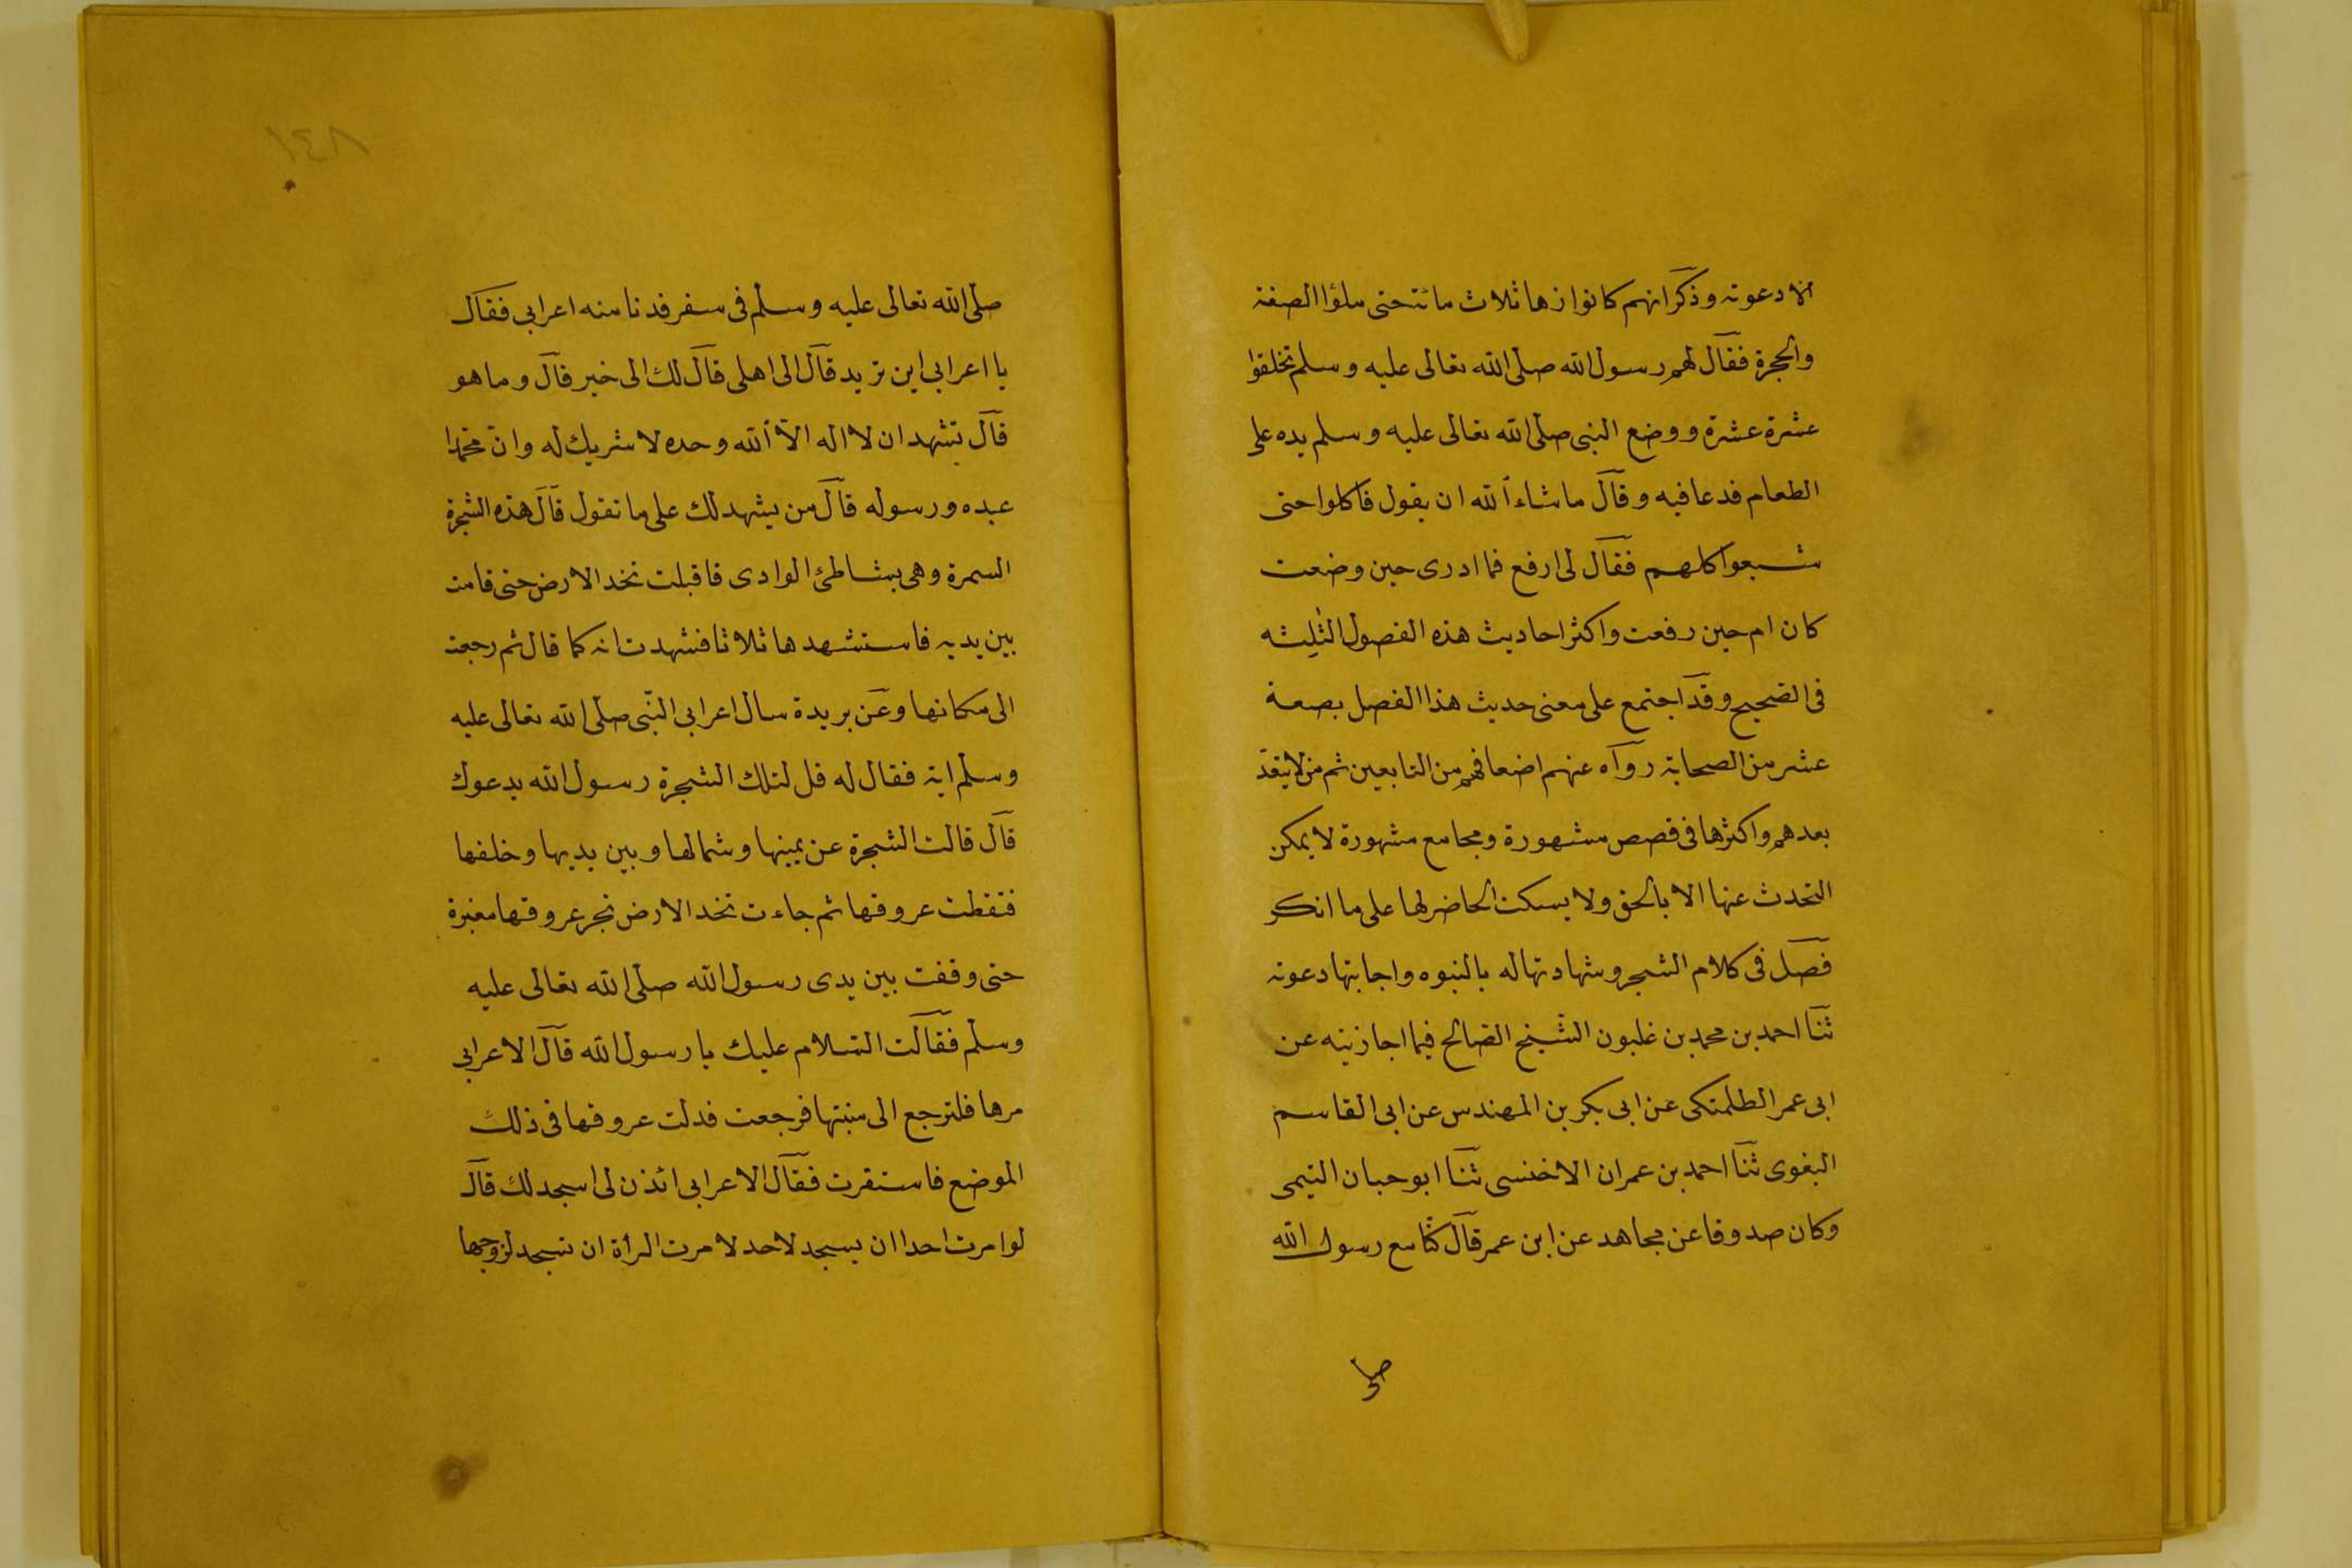 الا دعوته وذكر انهم كانوا زهاثلاث مائة حتى ملؤا الصفة
والحجرة فقال لهم رسول الله صلى الله تعالى عليه وسلم تحلقوا
عشرة عشرة ووضع النبى صلى الله تعالى عليه وسلم يده على
الطعام فدعا فيه وقال ماشاء الله ان يقول فاكلوا حتى
شبعوا كلهم فقال لى ارفع فما ادرى حين وضعت
كان ام حين رفعت واكثر احاديث هذه الفصول الثلثه
فى الصحيح وقد اجتمع على معنى حديث هذا الفصل بضعة
عشر من الصحابة رواه عنهم اضعافهم من التابعين ثم من لا ينعد
بعدهم واكثرها فى قصص مشهورة ومجامع مشهورة لا يمكن
التحدث عنها الا بالحق ولا يسكت الحاضر لها على ما انكر
فصل فى كلام الشجر وشهادتها له بالنبوه واجابتها دعوته
ثنا احمد بن محمد بن غلبون الشيخ الصالح فيما اجازنيه عن
ابى عمر الطلمنكى عن ابى بكر بن المهندس عن ابى القاسم
البغوى ثنا احمد بن عمران الاخنسى ثنا ابو حبان التيمى
وكان صدوقا عن مجاهد عن ابن عمر قال كنا مع رسول الله
صلى
١٤٨
صلى الله تعالى عليه وسلم فى سفر فدنا منه اعرابى فقال
يا اعرابى اين تريد قال الى اهلى قال لك الى خير قال وما هو
قال تشهد ان لا اله الا الله وحده لا شريك له وان محمدا
عبده ورسوله قال من يشهد لك على ما تقول قال هذه الشجرة
السمرة وهى بشاطئ الوادى فاقبلت تخد الارض حتى قامت
بين يديه فاستشهدها ثلاثا فشهدت انه كما قال ثم رجعت
الى مكانها وعن بريدة سال اعرابى النبى صلى الله تعالى عليه
وسلم اية فقال له قل لتلك الشجرة رسول الله يدعوك
قال قالت الشجرة عن يمينها وشمالها وبين يديها وخلفها
فتقطت عروقها ثم جاءت تخد الارض تجر عروقها مغبرة
حتى وقفت بين يدى رسول الله صلى الله تعالى عليه
وسلم فقالت السلام عليك يا رسول الله قال الاعرابى
مرها فلترجع الى منبتها فرجعت فدلت عروقها فى ذلك
الموضع فاستقرت فقال الاعرابى ائذن لى اسجد لك قال
لو امرت احدا ان يسجد لاحد لامرت المرأة ان تسجد لزوجها